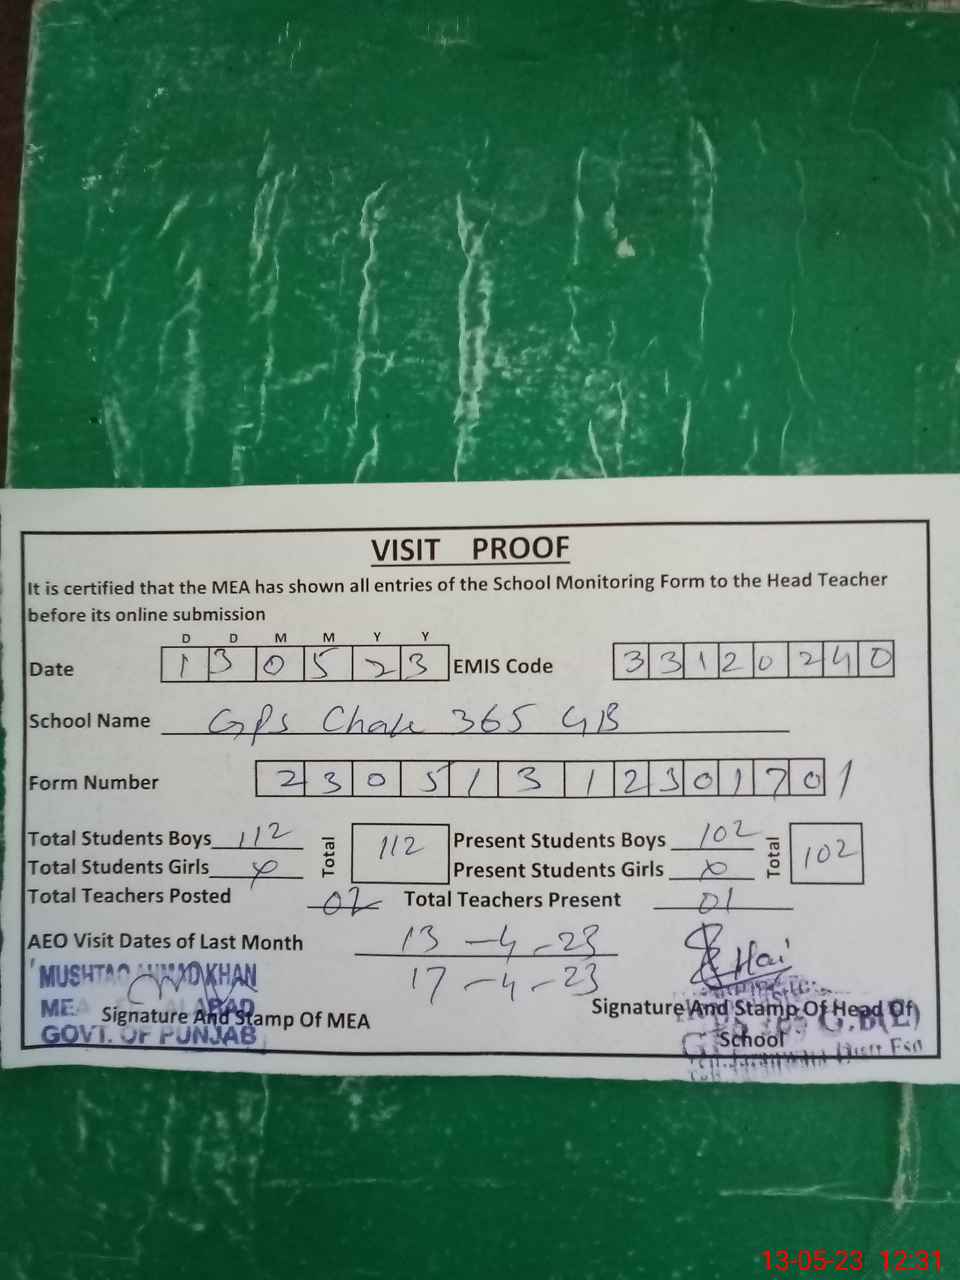 VISIT PROOF
It is certified that the MEA has shown all entries of the School Monitoring Form to the Head Teacher
before its online submission
D D M M Y Y
Date 1 3 0 5 2 3 EMIS Code 3 3 1 2 0 2 4 0
School Name GPS Chak 365 GB
Form Number 2 3 0 5 1 3 1 2 3 0 1 7 0 1
Total Students Boys 112 Total 112 Present Students Boys 102 Total 102
Total Students Girls Present Students Girls
Total Teachers Posted 02 Total Teachers Present 01
AEO Visit Dates of Last Month 13 - 4 - 23
17 - 4 - 23
MUSHTAQ AHMAD KHAN
MEA
GOVT. OF PUNJAB
Signature And Stamp Of MEA
Hai
Signature And Stamp Of Head Of
School
G.B(E)
13-05-23 12:31